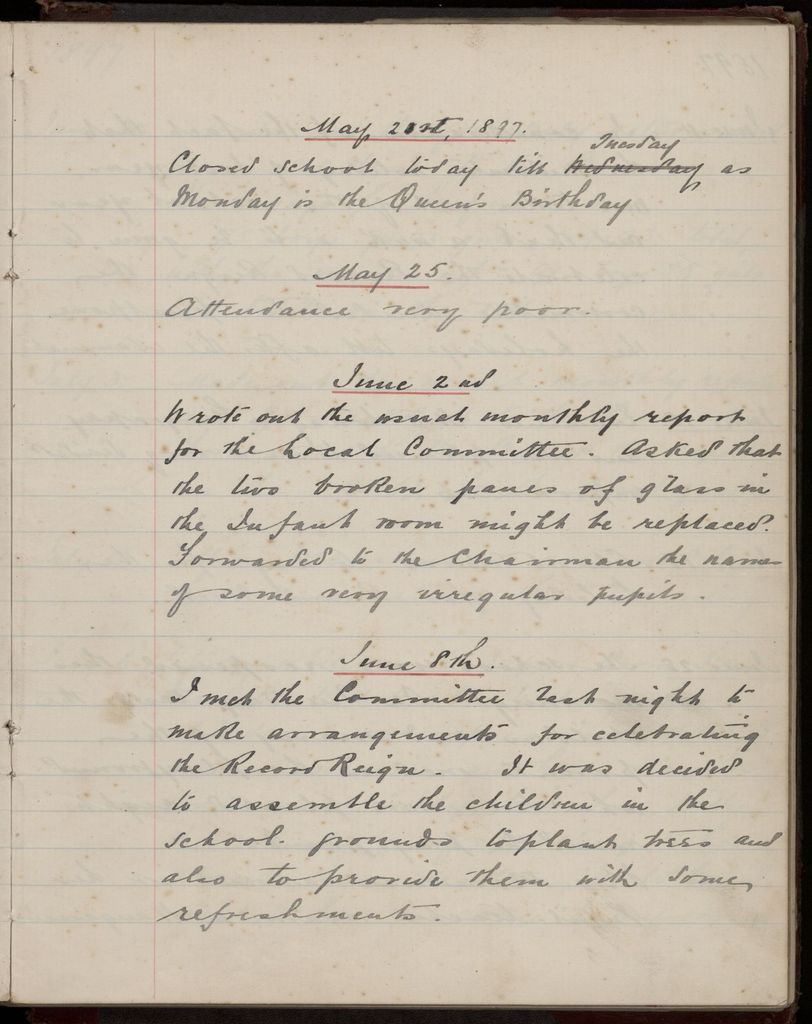 May 21st, 1897.
Closed school today till Wednesday Tuesday as
Monday is the Queen's Birthday
May 25.
Attendance very poor.
June 2nd
Wrote out the usual monthly report
for the Local Committee. Asked that
the two broken panes of glass in
the Infant room might be replaced.
Forwarded to the Chairman the names
of some very irregular pupils.
June 8th.
I met the Committee last night to
make arrangements for celebrating
the Record Reign. It was decided
to assemble the children in the
school-grounds to plant trees and
also to provide them with some
refreshments.